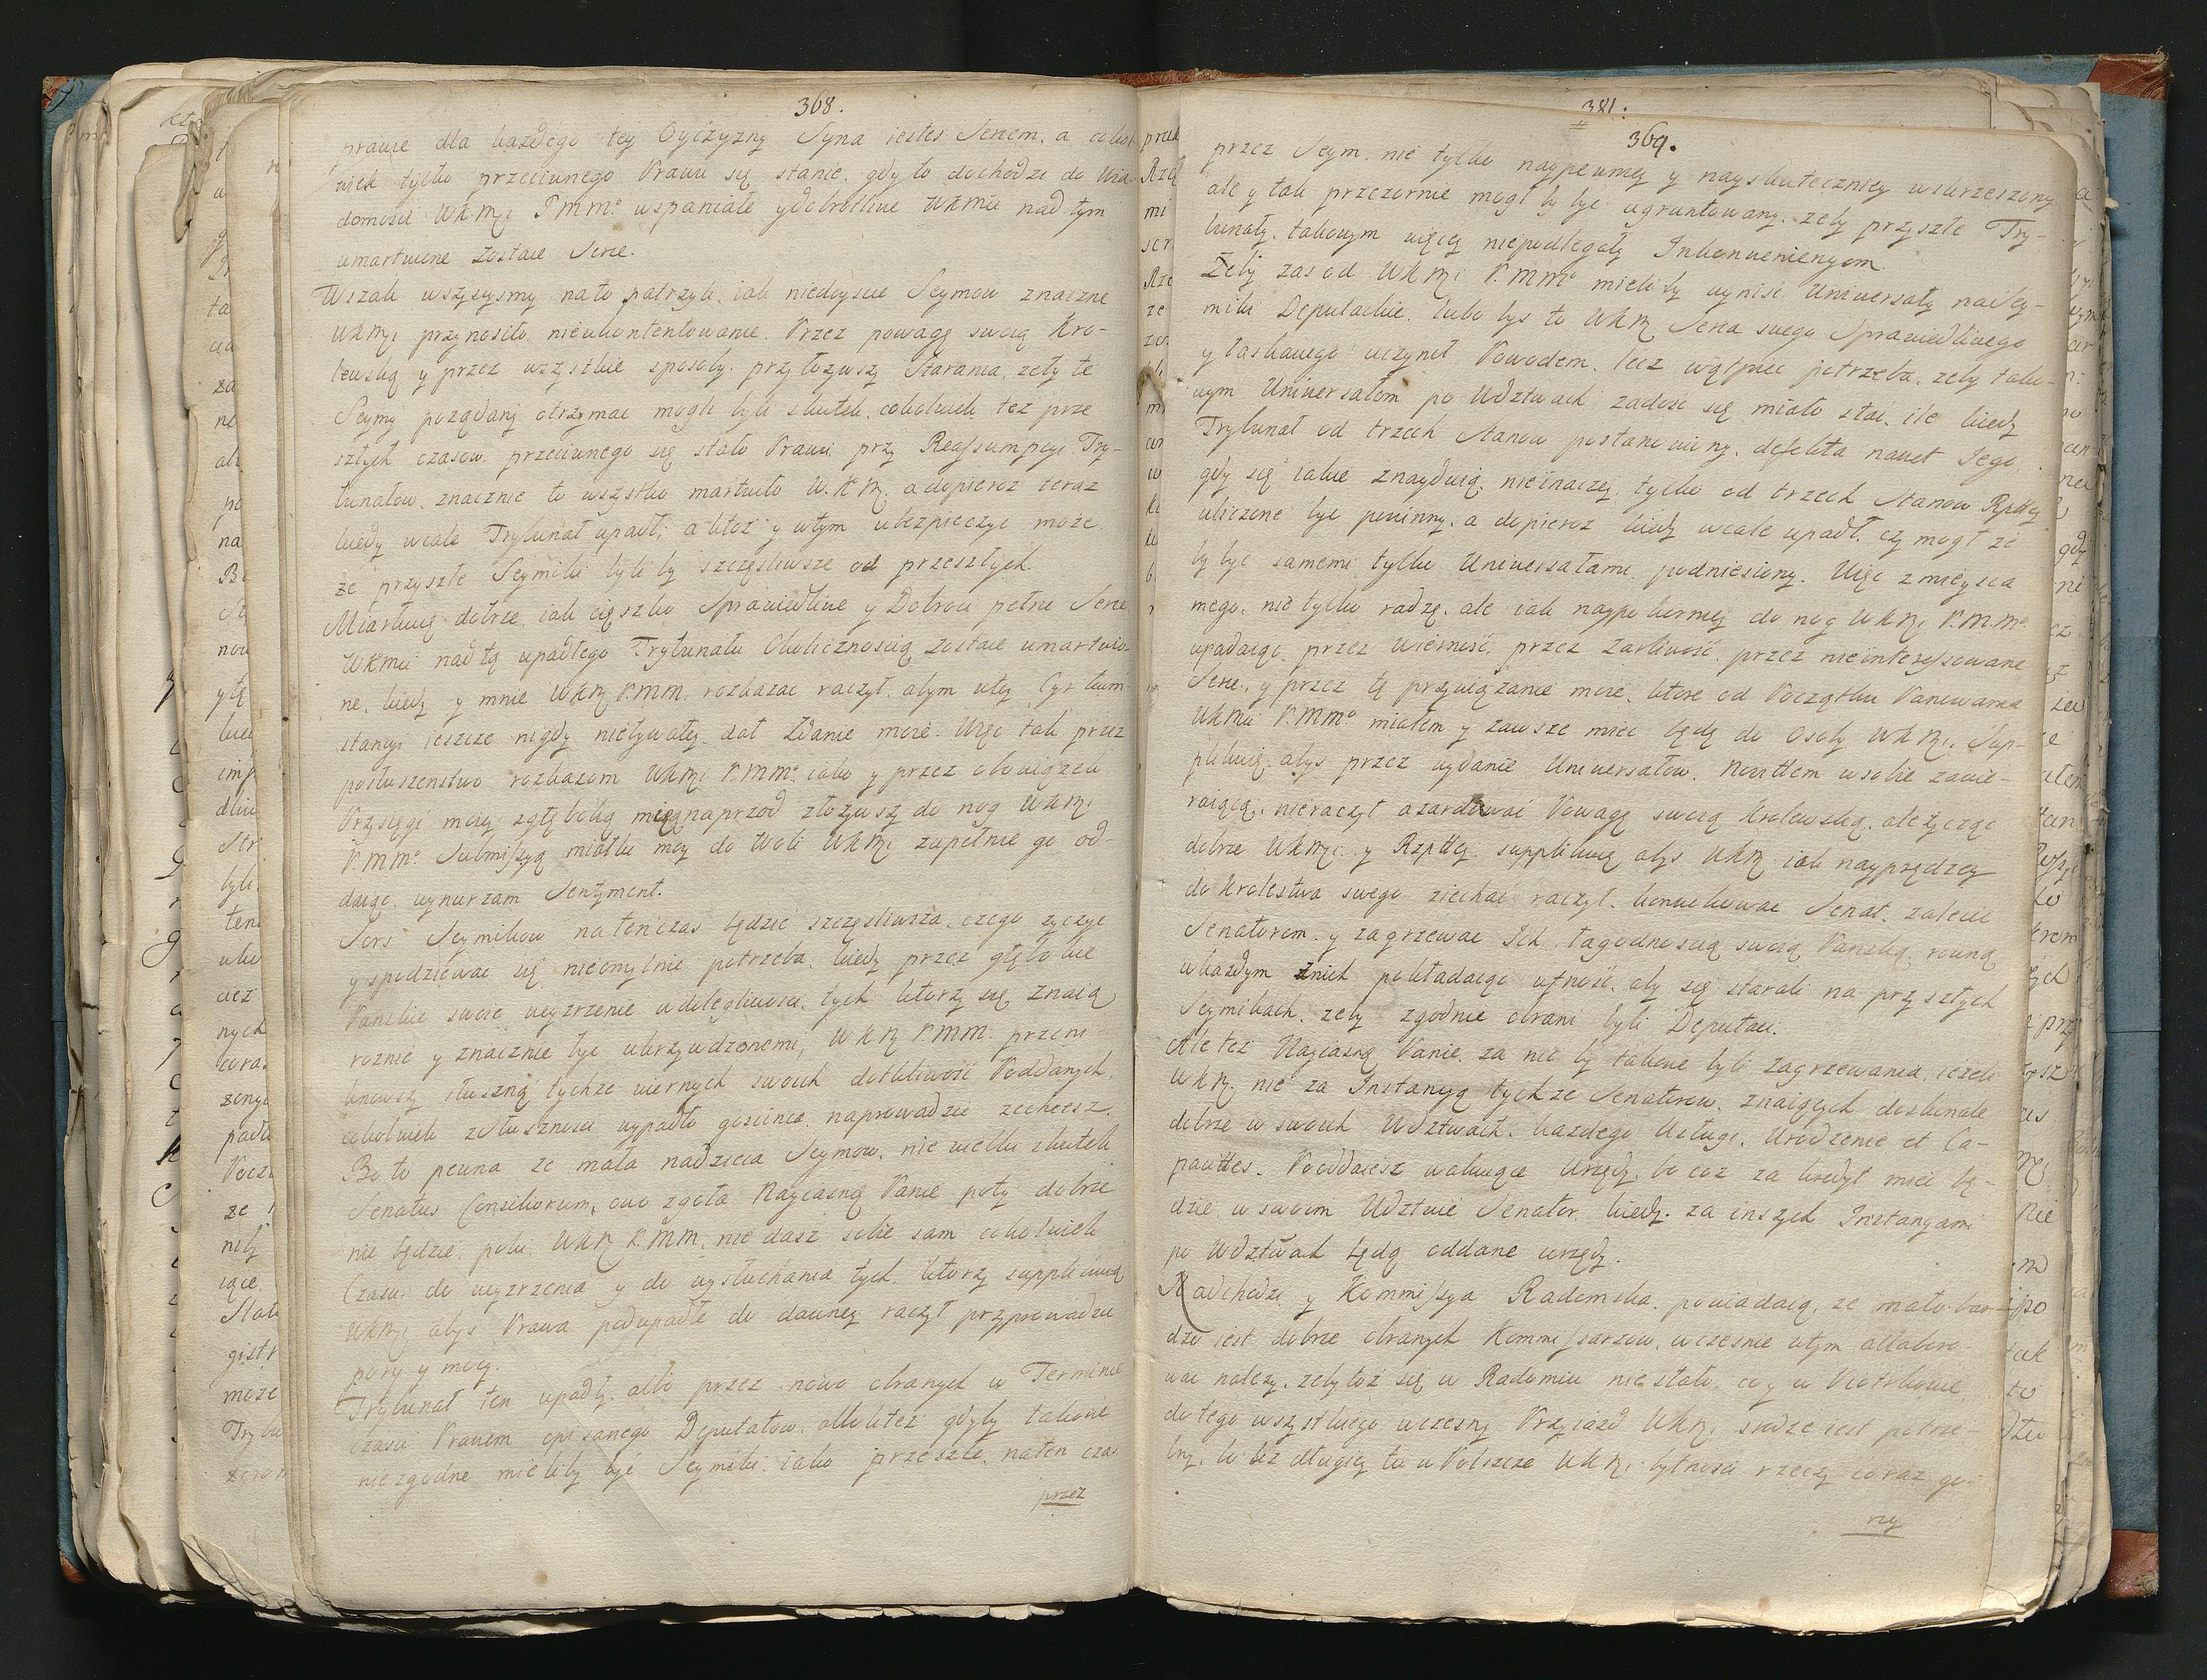 368.
prawie dla każdego tey Oyczyzny Syna iestes Sercem, a cokol-
wiek tylko przeciwnego Prawu się stanie, gdy to dochodzi do Wia-
domosci WKMci PMMo wspaniałe y dobrotliwe WKMci nad tym
umartwione zostaie Serce.
Wszak wszyscysmy na to patrzyli, iak niedoyscie Seymow znaczne
WKMci przynosiło nieukontentowanie. Przez powagę swoią Kro-
lewską y przez wszystkie sposoby przyłożywszy starania, zeby te
Seymy pożądany otrzymac mogli byli skutek, cokolwiek też prze
szłych czasow przeciwnego się stało Prawu przy Reassumpcyi Try-
bunałow, znacznie to wszystko martwiło W.K.M. a dopieroż teraz
kiedy wcale Trybunał upadł; a ktoż y w tym ubezpieczyc może
że przyszłe Seymiki byli by szczęsliwsze od przeszłych.
Miarkuię dobrze, iak cięszko Sprawiedliwe y Dobroci pełne Serce
WKMci nad tą upadłego Trybunału Okolicznoscią zostaie umartwio-
ne, kiedy y mnie WKM PMM rozkazac raczył, abym w tey Cyrkum-
stancyi ieszcze nigdy niebywałey dał Zdanie moie. Więc tak przez
posłuszenstwo rozkazom WKMci PMMo iako y przez obowiązek
Przysięgi moiey zgłęboką naprzod złożywszy do nog WKMci
P.MMo Submissyą miałki moy do Woli WKMci zupełnie go od-
daiąc, wynurzam Sentyment.
Sors Seymikow natenczas będzie szczęsliwsza, czego życzyc
y spodziewac się nieomylnie potrzeba, kiedy przez głębokie
Panskie swoie weyzrzenie w dolegliwosci tych ktorzy się znaią
roznie y znacznie byc ukrzywdzonemi, WKM P.MM. przeni
knowszy słuszną tychże wiernych swoich dotkliwosc Poddanych,
cokolwiek z słusznosci wypadło goscinca, naprowadzic zechcesz.
Bo to pewna że mała nadzieia Seymow, nie wielki skutek
Senatus Consiliorum, owo zgoła Nayiasnieyszy Panie poty dobrze
nie będzie, poki WKM P.MM. nie dasz sobie sam cokolwiek
Czasu do weyzrzenia y do wysłuchania tych, ktorzy supplikuią
WKMci abys Prawa podupadłe do dawney raczył przyprowadzic
pory y mocy.
Trybunał ten upadły, albo przez nowo obranych w Terminie
czasu Prawem opisanego Deputatow, albo też gdyby takowe
niezgodne mieliby byc Seymiki, iako przeszłe, naten czas
przez
381.
369.
przez Seym, nie tylko naypewniey y nayskuteczniey wskrzeszony
ale y tak przezornie mogł by byc ugruntowany, zeby przyszłe Try-
bunały, takowym więcey niepodlegały Inkonweniencyom.
Zeby zas od WKMci P.MMo mieli by wynisc Uniwersały na Sey-
miki Deputackie, lubo bys to WKM Serca swego Sprawiedliwego
y łaskawego uczynił Powodem, lecz wątpic potrzeba, zeby tako-
wym Uniwersałom po Wdztwach zadosc się miało stac, ile kiedy
Trybunał od trzech Stanow postanowiony, defekta nawet Iego
gdy się iakie znayduią, nieinaczey tylko od trzech Stanow Rzptey
uliczone byc powinny, a dopieroż kiedy wcale upadł, czy mogł ze
by byc samemi tylko Uniwersałami podniesiony. Więc z mieysca
mego, nie tylko radzę, ale iak naypokorniey do nog WKMci P.M.Mo
upadaiąc, przez wiernosc, przez zarliwosc, przez nieinteressowane
Serce, y przez tę przywiązanie moie, ktore od Początku Panowania
WKMci P.MMo miałem y zawsze miec będę do Osoby WKMci, Sup-
plikuię, abys przez wydanie Uniwersałow, Novitatem w sobie zawie-
raiącą, nieraczył azardowac Powagę swoią Krolewską, ale życząc
dobrze WKMci y Rzptey, supplikuię abys WKM iak nayprędzey
do Krolestwa swego ziechac raczył, konwokowac Senat, zalecic
Senatorom, y zagrzewac Ich łagodnoscią swoią Panską, rowną
w każdym z nich pokładaiąc ufnosc, aby się starali na przyszłych
Seymikach, zeby zgodnie obrani byli Deputaci.
Ale też Nayiasnieyszy Panie, za nic by takowe byli zagrzewania, ieżeli
WKM nie za Instancyą tychże Senatorow, znaiących doskonale
dobrze w swoich Wdztwach, każdego Usługi, Urodzenie et Ca-
pacites. Pooddaiesz wakuiące Urzędy, bo coż za kredyt miec bę-
dzie w swoim Wdztwie Senator, kiedy za inszych Instancyami
po Wdztwach będą oddane urzędy.
Nadchodzi y Kommissya Radomska, powiadaią, że mało bar-
dzo iest dobrze obranych Kommissarzow, wczesnie o tym allabora-
wac należy, zeby toż się w Radomiu nie stało, co y w Piotrkowie
do tego wszystkiego wczesny Przyiazd WKMci srodze iest potrze-
bny, bo bez długiey tu w Polszcze WKMci bytnosci rzeczy coraz go-
rzy